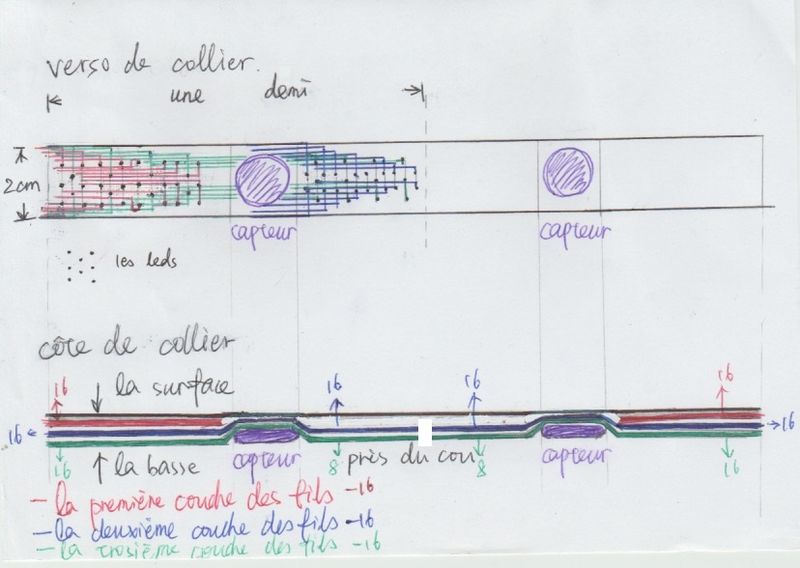 verso de collier.
une demi
2cm
capteur capteur
les leds
côte de collier
16 la surface 16 16 16
16 16
16 la basse capteur 8 près du cou 8 capteur 16
- la première couche des fils -16
- la deuxième couche des fils -16
- la troisième couche des fils -16